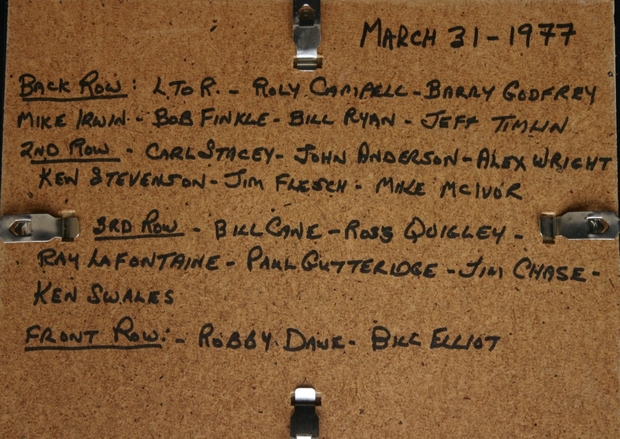 MARCH 31-1977
BACK ROW: L TO R. - ROLY CAMPELL - BARRY GODFREY
MIKE IRWIN - BOB FINKLE - BILL RYAN - JEFF TIMLIN
2ND ROW - CARL STACEY - JOHN ANDERSON - ALEX WRIGHT
KEN STEVENSON - JIM FLESCH - MIKE MCIVOR
3RD ROW - BILL CANE - ROSS QUIGLEY -
RAY LAFONTAINE - PAUL GUTTERIDGE - JIM CHASE -
KEN SWALES
FRONT ROW: - ROBBY DAWE - BILL ELLIOT